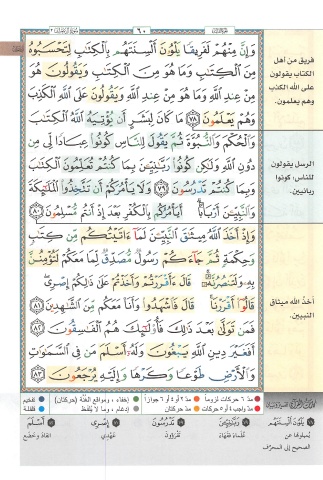 ٦٠
وَإِنَّ مِنْهُمْ لَفَرِيقًا يَلْوُونَ أَلْسِنَتَهُم بِالْكِتَابِ لِتَحْسَبُوهُ
مِنَ الْكِتَابِ وَمَا هُوَ مِنَ الْكِتَابِ وَيَقُولُونَ هُوَ
مِنْ عِندِ اللَّهِ وَمَا هُوَ مِنْ عِندِ اللَّهِ وَيَقُولُونَ عَلَى اللَّهِ الْكَذِبَ
وَهُمْ يَعْلَمُونَ ٧٨ مَا كَانَ لِبَشَرٍ أَن يُؤْتِيَهُ اللَّهُ الْكِتَابَ
وَالْحُكْمَ وَالنُّبُوَّةَ ثُمَّ يَقُولَ لِلنَّاسِ كُونُوا عِبَادًا لِّي مِن
دُونِ اللَّهِ وَلَٰكِن كُونُوا رَبَّانِيِّينَ بِمَا كُنتُمْ تُعَلِّمُونَ الْكِتَابَ
وَبِمَا كُنتُمْ تَدْرُسُونَ ٧٩ وَلَا يَأْمُرَكُمْ أَن تَتَّخِذُوا الْمَلَائِكَةَ
وَالنَّبِيِّينَ أَرْبَابًا أَيَأْمُرُكُم بِالْكُفْرِ بَعْدَ إِذْ أَنتُم مُّسْلِمُونَ ٨٠
وَإِذْ أَخَذَ اللَّهُ مِيثَاقَ النَّبِيِّينَ لَمَا آتَيْتُكُم مِّن كِتَابٍ
وَحِكْمَةٍ ثُمَّ جَاءَكُمْ رَسُولٌ مُّصَدِّقٌ لِّمَا مَعَكُمْ لَتُؤْمِنُنَّ
بِهِ وَلَتَنصُرُنَّهُ قَالَ ءَأَقْرَرْتُمْ وَأَخَذْتُمْ عَلَىٰ ذَٰلِكُمْ إِصْرِي
قَالُوا أَقْرَرْنَا قَالَ فَاشْهَدُوا وَأَنَا مَعَكُم مِّنَ الشَّاهِدِينَ ٨١
فَمَن تَوَلَّىٰ بَعْدَ ذَٰلِكَ فَأُولَٰئِكَ هُمُ الْفَاسِقُونَ ٨٢
أَفَغَيْرَ دِينِ اللَّهِ يَبْغُونَ وَلَهُ أَسْلَمَ مَن فِي السَّمَاوَاتِ
وَالْأَرْضِ طَوْعًا وَكَرْهًا وَإِلَيْهِ يُرْجَعُونَ ٨٣
فريق من أهل
الكتاب يقولون
على الله الكذب
وهم يعلمون.
الرسل يقولون
للناس: كونوا
ربانيين.
أخذ الله ميثاق
النبيين.
مدّ ٦ حركات لزوماً مدّ ٢ أو ٤ أو ٦ جوازاً إخفاء، ومواقع الغُنَّة (حركتان) تفخيم
مدّ واجب ٤ أو ٥ حركات مدّ حركتان إدغام، وما لا يُلفَظ قلقلة
يَلْوُونَ أَلْسِنَتَهُم
يُميلونها عن
الصحيح إلى المحرَّف
رَبَّانِيِّينَ
عُلماءَ فقهاءَ
تَدْرُسُونَ
تقرؤون
إِصْرِي
عَهْدِي
أَسْلَمَ
انقاد وخضع